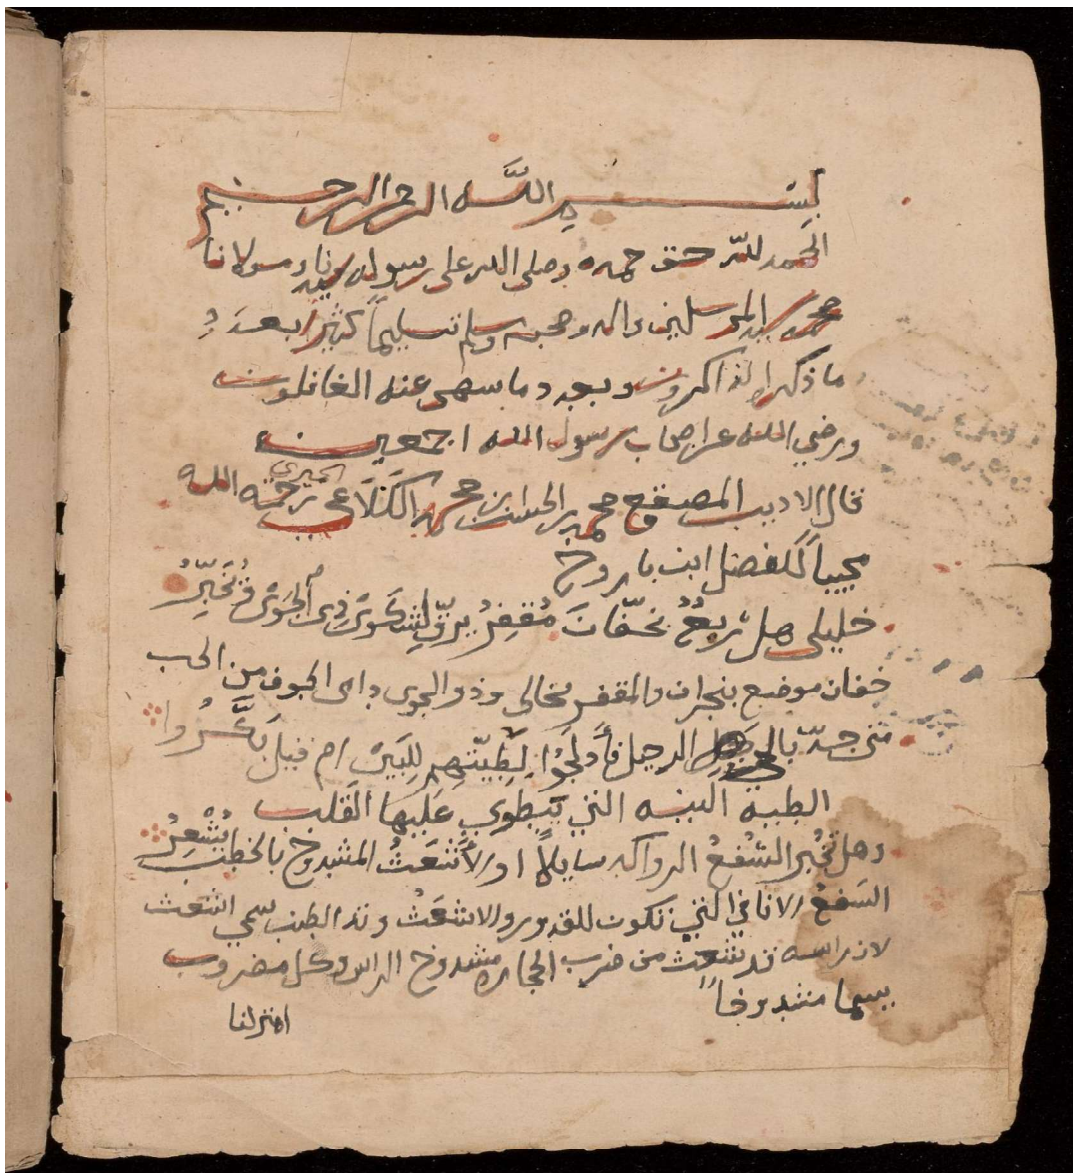 بسم الله الرحمن الرحيم
الحمد لله حق حمده وصلى الله على رسوله سيدنا ومولانا
محمد سيد المرسلين واله وصحبه وسلم تسليماً كثيراً بعدد
ما ذكره الذاكرون وبعدد ما سهى عنه الغافلون
ورضي الله عن اصحاب رسول الله اجمعين
قال الاديب المصقع محمد بن الحسن بن محمد الكَلَاعي الحميري رحمه الله
مجيباً للفضل ابن باروخ
خليلي هل رَبعٌ بخَفّانَ مُقفِرُ يرقّ لشكوى ذي الجوى فيُخَبِّرُ
خفان موضع بنجران والمقفر الخالي وذو الجوى داء الجوف من الحب
متى جدّ بالحي الرحيل فأدلجوُا لِطَيّتهم للبَين ام قيل بَكَّروا
الطيه النيه التي ينطوي عليها القلب
وهل تُخْبر السُّفعُ الرواكد سايلاً او الأشعَثُ المشدوخ بالخطب يُشْعِرُ
السُفعُ الاثافي التي تكون للقدور والاشعَث وتد الطنب سمي اشعث
لان راسه قد تشعث من ضرب الحجاره مشدوخ الراس وكل مضروب
يسما مشدوخاً